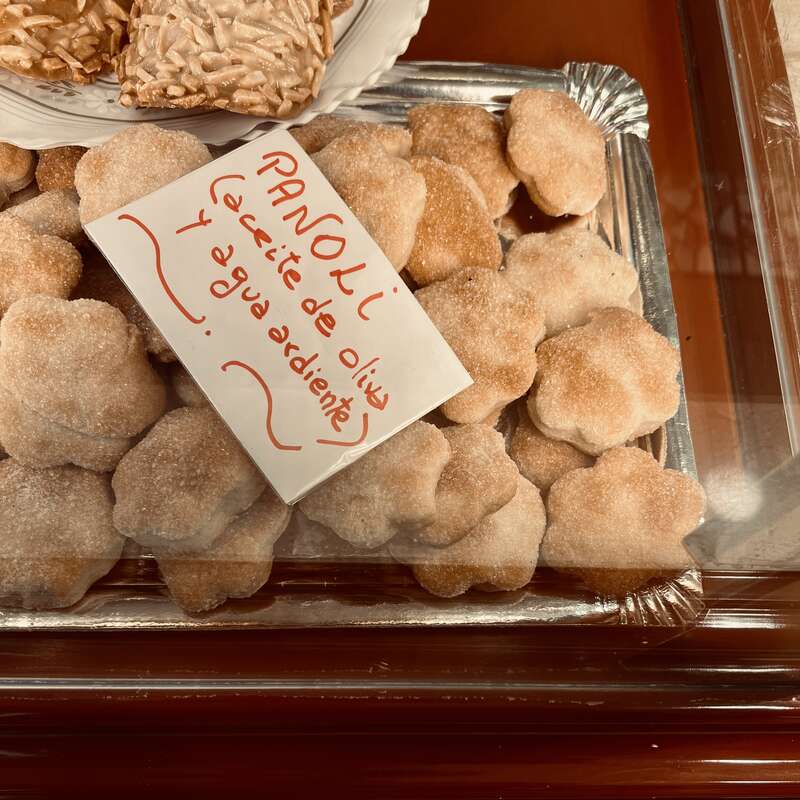 PANOLi
(aceite de oliva
y agua ardiente)